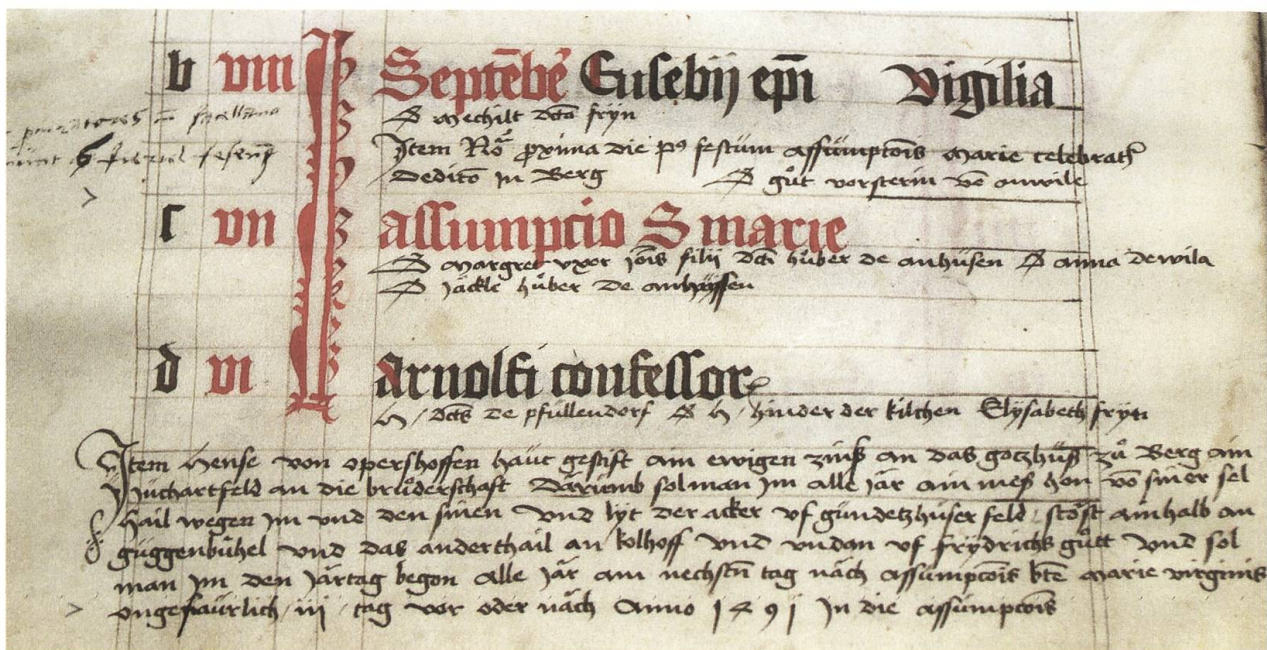 b viii Septēbē Eusebij epī Vigilia
S mechilt dcā fryn
Item Ro proxima die p9 festum assumptōis marie celebrat
Dedicō in Berg S gůt vorsterin vō
c vii assumpcio S marie
S margret vxor joīs filij dcī hůber de anhusen S anna dewila
S jäckle hůber de anhussen
d vi arnolfi confessor
H / dcūs de pfullendorf S H / hinder der kilchen Elysabeth fryn
Item Hense von opershoffen haut gestift ain ewigen zinß an das gotzhuß zů Berg ain
Juchartfeld an die brůderschaft Darumb sol man im alle jar ain meß hon vō siner sel
hail wegen im vnd den sinen vnd lyt der acker vf gundetzhuser feld stost ainhalb an
guggenbuhel vnd das anderthail an kolhoff vnd vndan vf frydrichs gůtt vnd sol
man im den jartag begon alle jar am nechstn tag nach assumptōis btē marie virginis
vngefaurlich iii tag vor oder nach Anno 1491 in die assumptōis